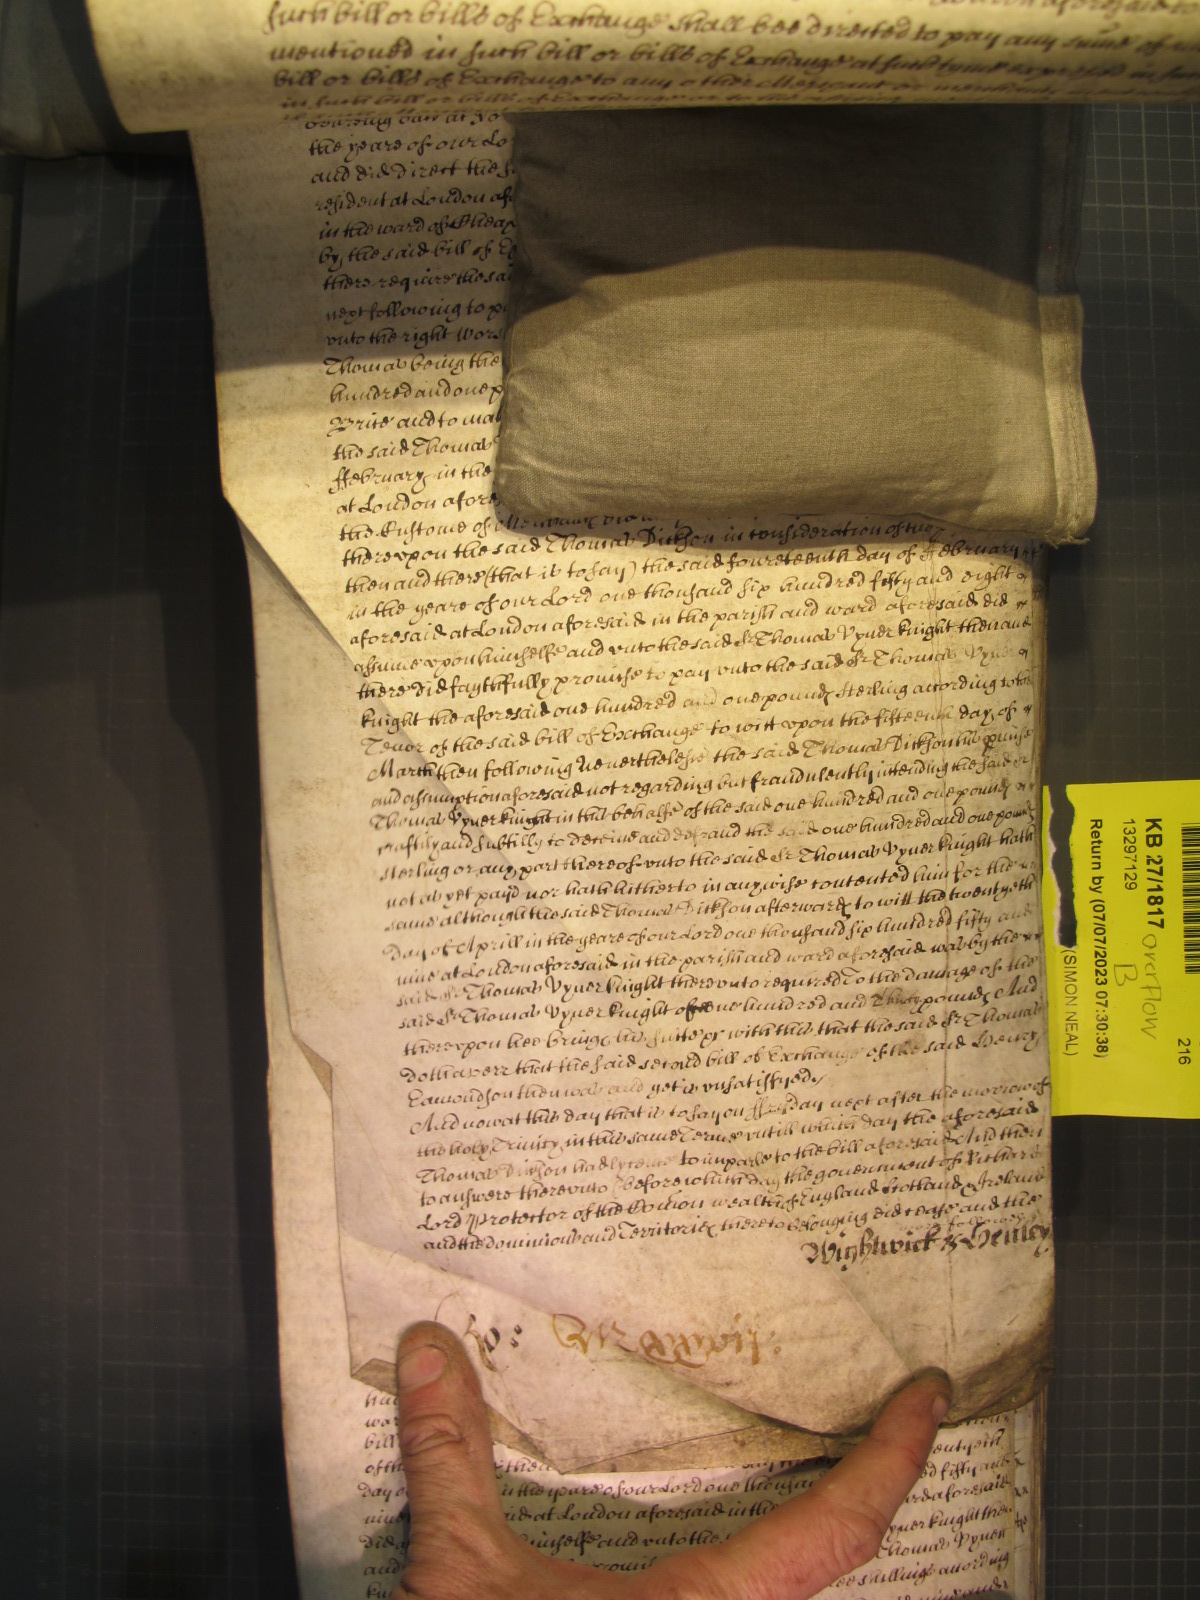 such bill or bills of Exchange shall bee directed to pay any sume of
mentioned in such bill or bills of Exchange at such tyme expressed in such
bill or bills of Exchange to any other Merchant or
in such bill or bills of Exchange or to the
the yeare of our Lo
and did direct the s
resident at London afo
in the ward of Cheap
by the said bill of Ex
there require the sai
next following to p
vnto the right wors
Thomas being the
hundred and one p
Brite and to mak
the said Thomas
ffebruary in the
at London afores
the Custome of
therevpon the said Thomas Dickson in consideration of
then and there (that is to say) the said fourteenth day of ffebruary
in the yeare of our Lord one thousand six hundred fifty and eight
aforesaid at London aforesaid in the parish and ward aforesaid did
assume vpon himselfe and vnto the said Sr Thomas Vyner knight then and
there did faythfully promise to pay vnto the said Sr Thomas Vyner
knight the aforesaid one hundred and one pounds sterling according to the
Tenor of the said bill of Exchange to witt vpon the fifteenth day of
March then following Neverthelesse the said Thomas Dickson his promise
and assumption aforesaid not regarding but fraudulently intending the said Sr
Thomas Vyner knight in this behalfe of the said one hundred and one pounds
craftily and subtilly to deceive and defraud the said one hundred and one pounds
sterling or any part thereof vnto the said Sr Thomas Vyner knight hath
not as yet payd nor hath hitherto in any wise contented him for the
same although the said Thomas Dickson afterwards to witt the twentyeth
day of Aprill in the yeare of our Lord one thousand six hundred fifty and
nine at London aforesaid in the parish and ward aforesaid was by the
said Sr Thomas Vyner knight therevnto required To the damage of the
said Sr Thomas Vyner knight of one hundred and pounds And
therevpon hee brings his suite &c with this that the said Sr Thomas
doth averr that the said second bill of Exchange of the said Henry
Edmondson then was and yet is vnsatisfyed
And now at this day that is to say on ffryday next after the morrow of
the holy Trinity in this same Terme vntill which day the aforesaid
Thomas Dickson had lycence to imparle to the bill aforesaid And then
to answere therevnto &c before which day the government of Richard
Lord Protector of the Comon wealth of England Scotland & Ireland
and the dominions and Territories thereto belonging did cease and the
Wightwick & Henley
hun
war
bill
of the
day o in the yeare of our Lord one thousand
nine said at London aforesaid in the
did a himselfe and vnto the s
and promis
kn
twentyeth
ed fifty and
ard aforesaid
yner knight the
Thomas Vyner
ee shillings according
KB 27/1817 overflow
13297129 B
Return by (07/07/2023 07:30:38)
(SIMON NEAL)
216